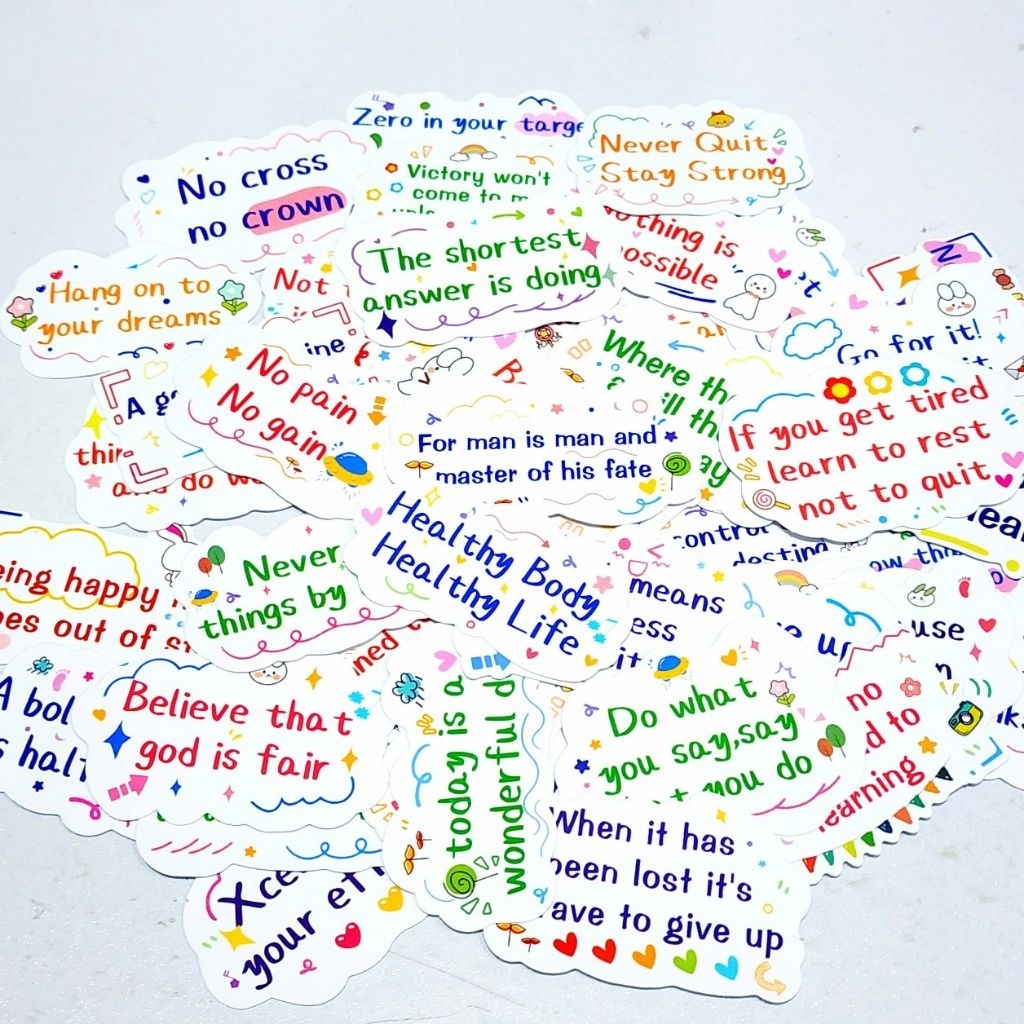 Zero in your targe
Never Quit
Stay Strong
No cross
no crown
Victory won't
come to m
The shortest
answer is doing
Nothing is
possible
Hang on to
your dreams
Not
ine
No pain
No gain
Where th
ill th
ay
Go for it!
it
If you get tired
learn to rest
not to quit
For man is man and
master of his fate
A g
thin
and do w
Healthy Body
Healthy Life
control
destin
means
ess
it
ow th
lea
use
eing happy
es out of s
Never
things by
ned t
Believe that
god is fair
A bol
s half
today is a
wonderful d
Do what
you say,say
t you do
e up
no
d to
learning
When it has
been lost it's
ave to give up
Xce
your eff